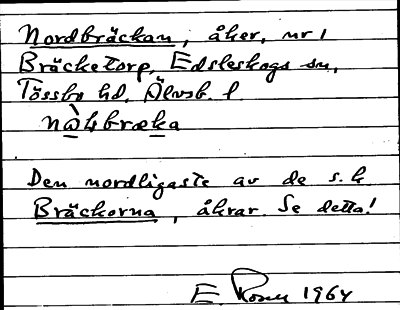 Nordbräckan, åker, nr 1
Bräcketorp, Edsleskogs sn,
Tössbo hd, Älvsb. l
Den nordligaste av de s.k
Bräckorna, åkrar. Se detta!
E. 1964